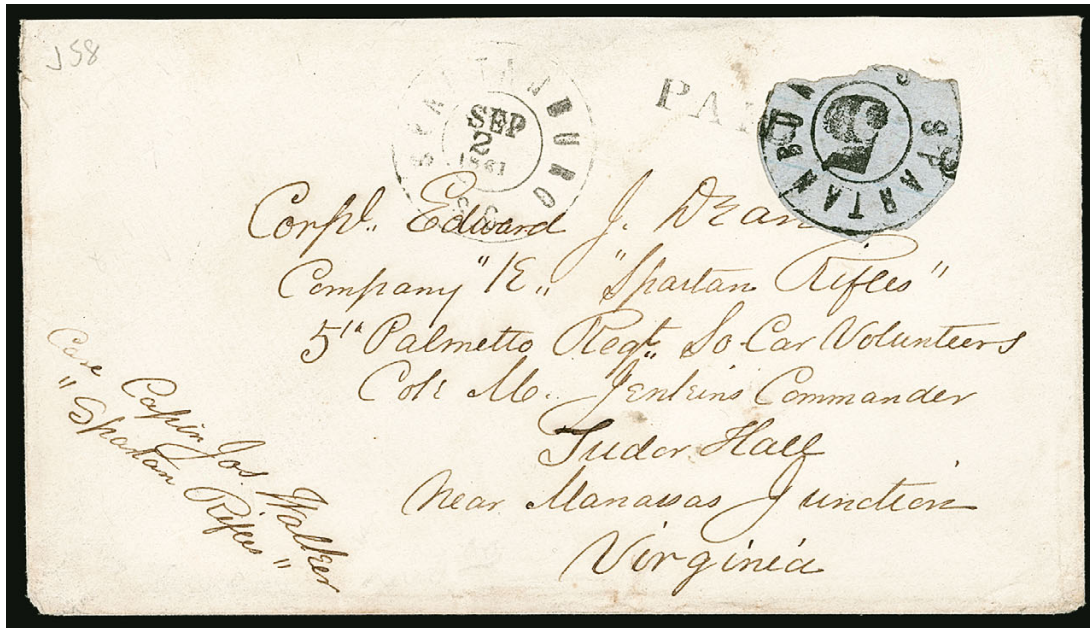 J58
SPARTANBURG
S.C.
SEP
2
1861
PAI
SPARTANBURG S
5
Corpl. Edward J. Dean
Company "E" "Spartan Rifles"
5th Palmetto Regt. So. Car Volunteers
Col: M. Jenkins Commander
Tudor Hall
Near Manassas Junction
Virginia
Care Captn Jos. Walker
"Spartan Rifles"